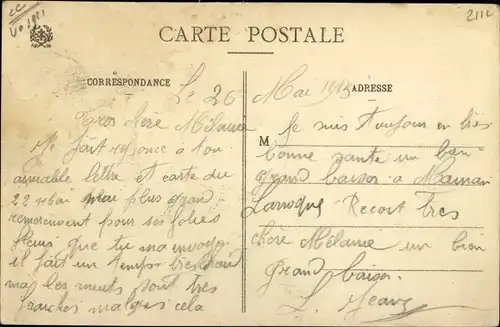 2112
CARTE POSTALE
CORRESPONDANCE
ADRESSE
Le 26 Mai 1915
Tres chère Mélanie
Je fait reponce à ton
aimable lettre et carte du
22 mai plus grand
remerciement pour ses jolies
fleurs que tu ma
il fait un temps
mais les nuits sont très
fraiches malgres cela
M
Je suis toujour en très
bonne sante un bien
grand baiser a Maman
Laroque Recoit très
chère Mélanie un bien
grand baiser